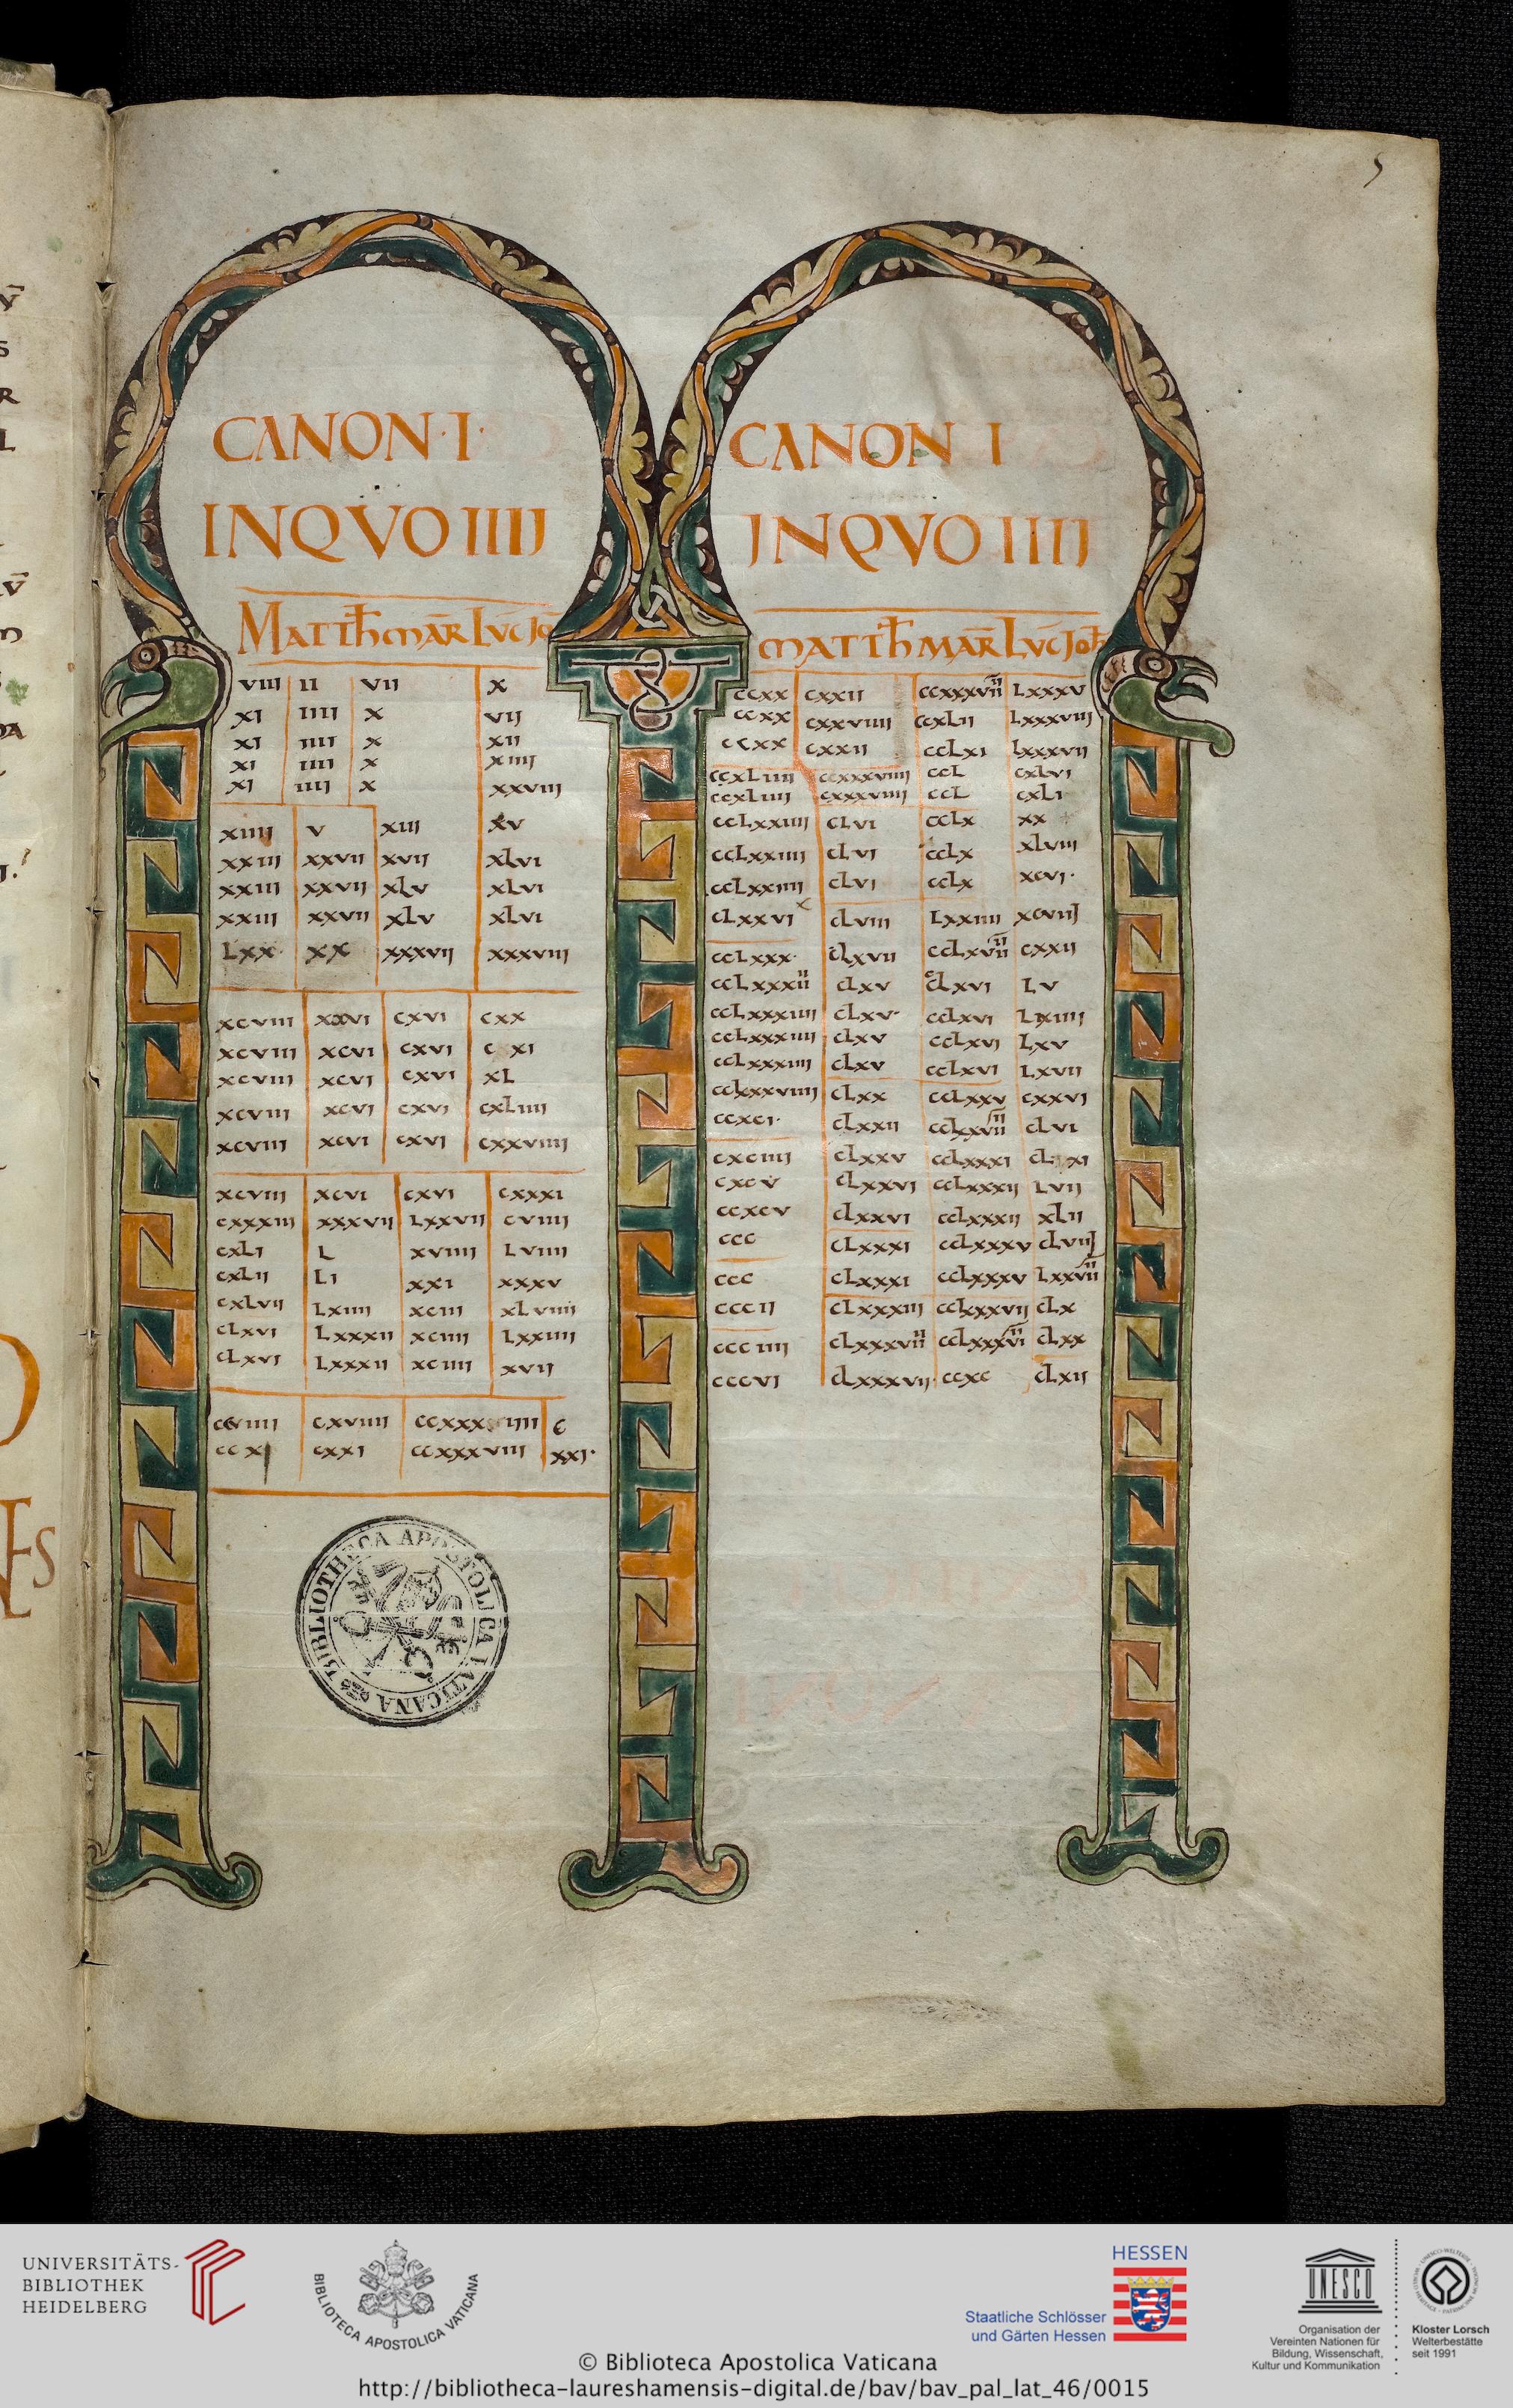 5
CANON·I·
INQVO IIIJ
MATTH MAR LVC JO
VIII II VII X
XI IIII X VII
XI IIII X XII
XI IIII X XIIII
XI IIII X XXVIII
XIIII V XIII XV
XXIII XXVII XVII XLVI
XXIII XXVII XLV XLVI
XXIII XXVII XLV XLVI
LXX XX XXXVII XXXVIII
XCVIII XXVI CXVI CXX
XCVIII XCVI CXVI C XI
XCVIII XCVI CXVI XL
XCVIII XCVI CXVI CXLIIII
XCVIII XCVI CXVI CXXVIIII
XCVIII XCVI CXVI CXXXI
CXXXIII XXXVII LXXVII CVIIII
CXLI L XVIIII LVIIII
CXLII LI XXI XXXV
CXLVII LXIIII XCIII XLVIIII
CLXVI LXXXII XCIIII LXXIIII
CLXVI LXXXII XCIIII XVII
CCVIIII CXVIIII CCXXX IIII C
CCXI CXXI CCXXXVIII XXI·
CANON I
INQVO IIII
MATTH MAR LVC JOH
CCXX CXXII CCXXXVIIII LXXXV
CCXX CXXVIIII CCXLII LXXXVIII
CCXX CXXII CCLXI LXXXVII
CCXLIIII CCXXXVIIII CCL CXLVI
CCXLIIII CXXXVIIII CCL CXLI
CCLXXIIII CLVI CCLX XX
CCLXXIIII CLVI CCLX XLVIII
CCLXXIIII CLVI CCLX XCVI·
CLXXVI CLVIII LXXIIII XCVIIJ
CCLXXX· CLXVII CCLXVIIII CXXII
CCLXXXII CLXV CLXVI LV
CCLXXXIIII CLXV· CCLXVI LXIIII
CCLXXXIIII CLXV CCLXVI LXV
CCLXXXIIII CLXV CCLXVI LXVII
CCLXXXVIIII CLXX CCLXXV CXXVI
CCXCI· CLXXII CCLXXVIIII CLVI
CXCIIII CLXXV CCLXXXI CL XI
CXCV CLXXVI CCLXXXII LVII
CCXCV CLXXVI CCLXXXII XLII
CCC CLXXXI CCLXXXV CLVIIJ
CCC CLXXXI CCLXXXV LXXVIIII
CCCII CLXXXIII CCLXXXVII CLX
CCCIIII CLXXXVIII CCLXXXVIII CLXX
CCCVI CLXXXVII· CCXC CLXII
BIBLIOTHECA APOSTOLICA VATICANA
UNIVERSITÄTS-
BIBLIOTHEK
HEIDELBERG
BIBLIOTECA APOSTOLICA VATICANA
HESSEN
Staatliche Schlösser
und Gärten Hessen
UNESCO
Organisation der
Vereinten Nationen für
Bildung, Wissenschaft,
Kultur und Kommunikation
Kloster Lorsch
Welterbestätte
seit 1991
© Biblioteca Apostolica Vaticana
http://bibliotheca-laureshamensis-digital.de/bav/bav_pal_lat_46/0015